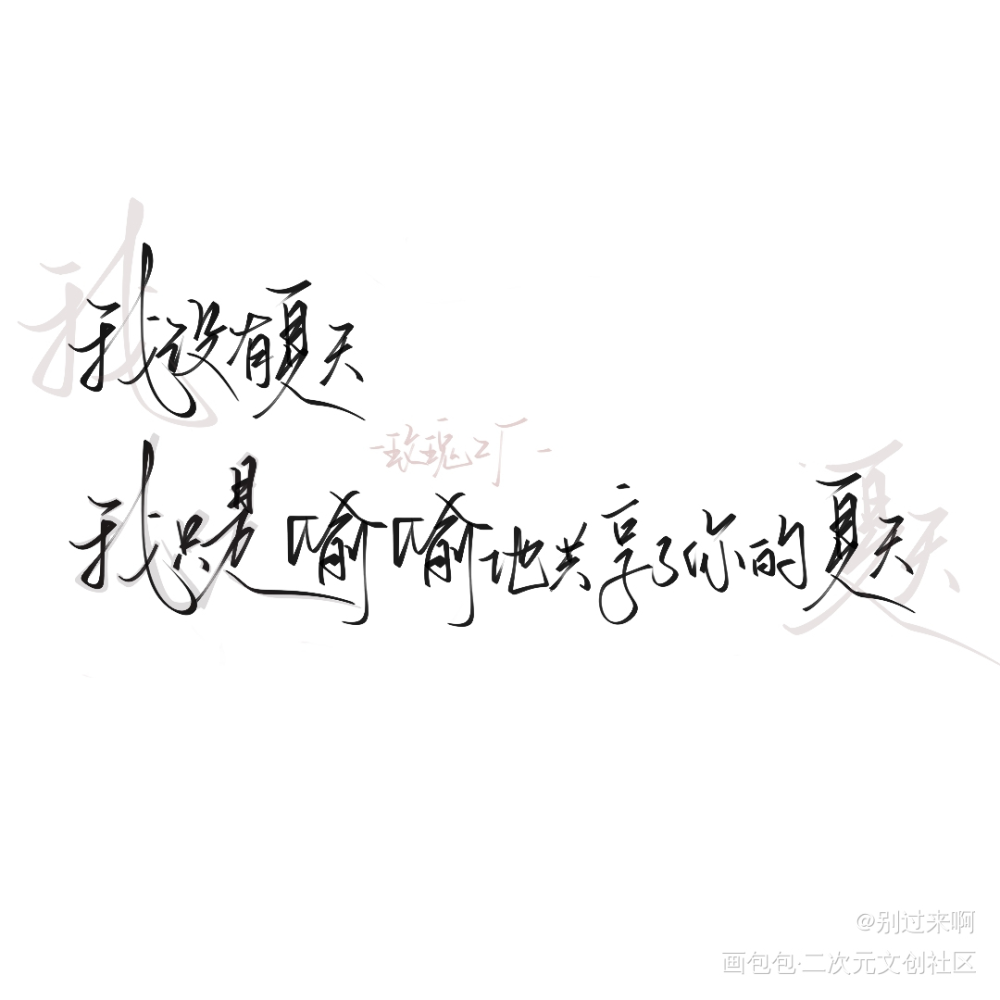 我没有夏天
-玫瑰工厂-
我只是偷偷地共享了你的夏天
@别过来啊
画包包·二次元文创社区